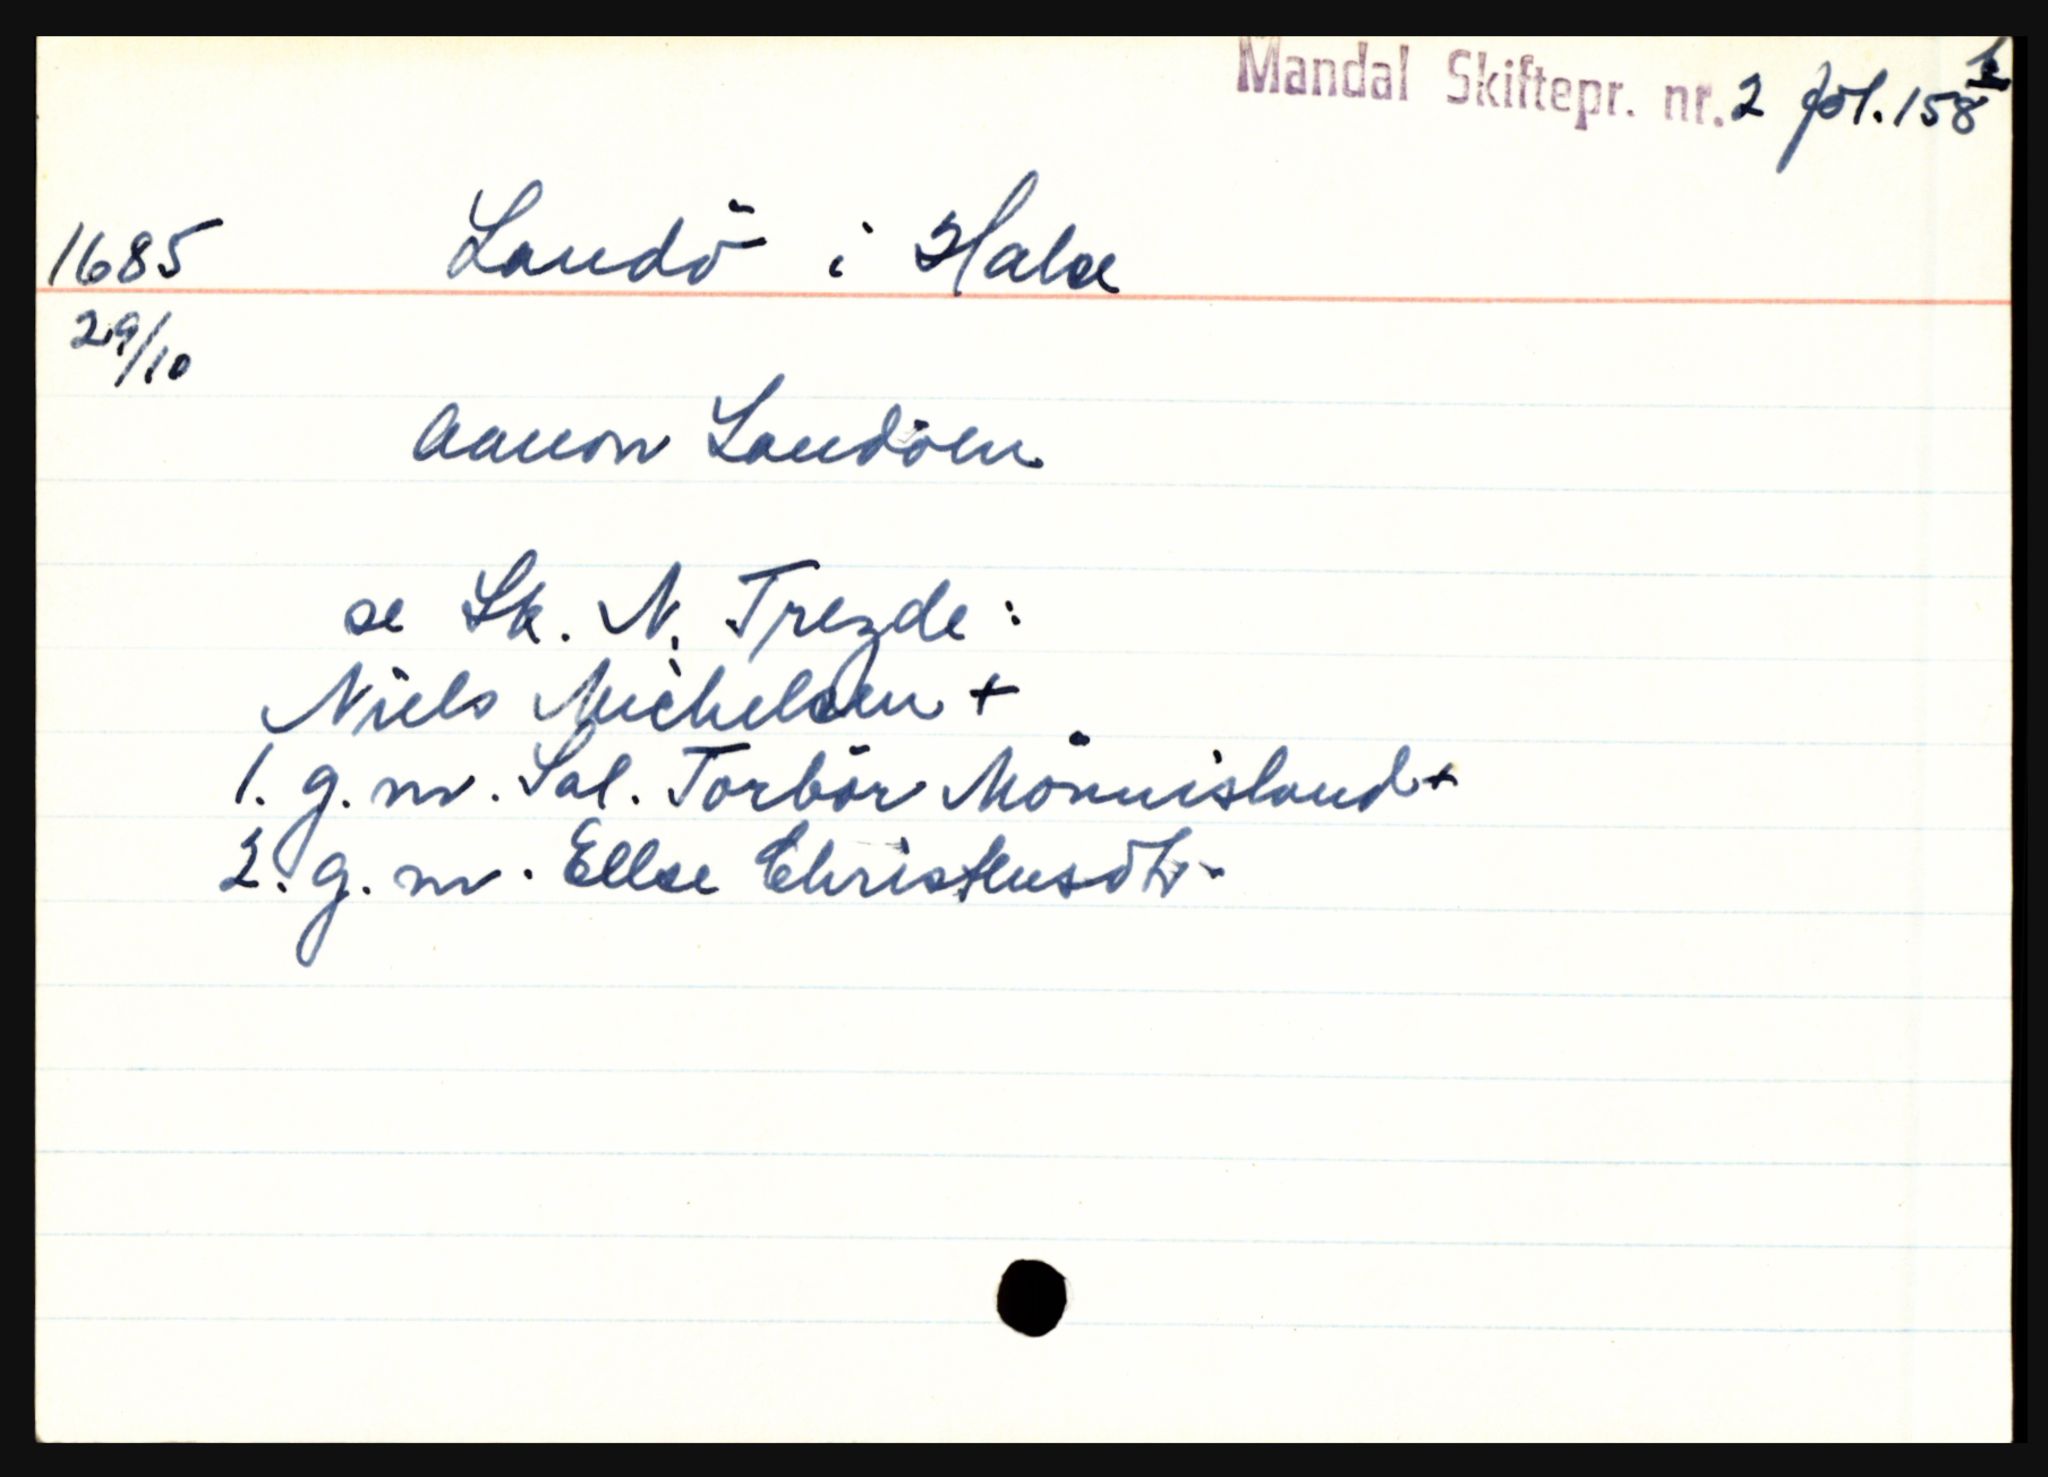 Mandal Skiftepr. nr. 2 fol. 158 b
1685 Landö i Halse
29/10
Aanon Landöen
se Sk. N. Trezde:
Niels Michelsen +
1. g. m. Sal. Torbör Mönnisland +
2. g. m. Ellse Christensdtr.